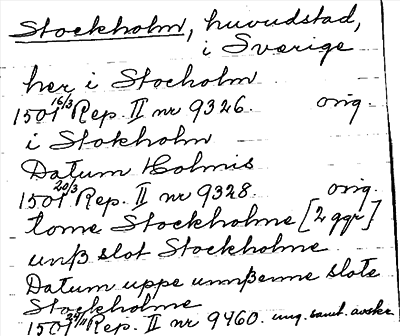 Stockholm, huvudstad,
i Sverige
her i Stocholm
1501 16/3 Rep. II nr 9326. orig.
i Stokholm
Datum Holmis
1501 20/3 Rep. II nr 9328. orig.
tome Stockholme [2 ggr]
unß slot Stockholme
Datum uppe unnßenne slote
Stockholme
1501 24/11 Rep. II nr 9460. ung. samt. avskr.